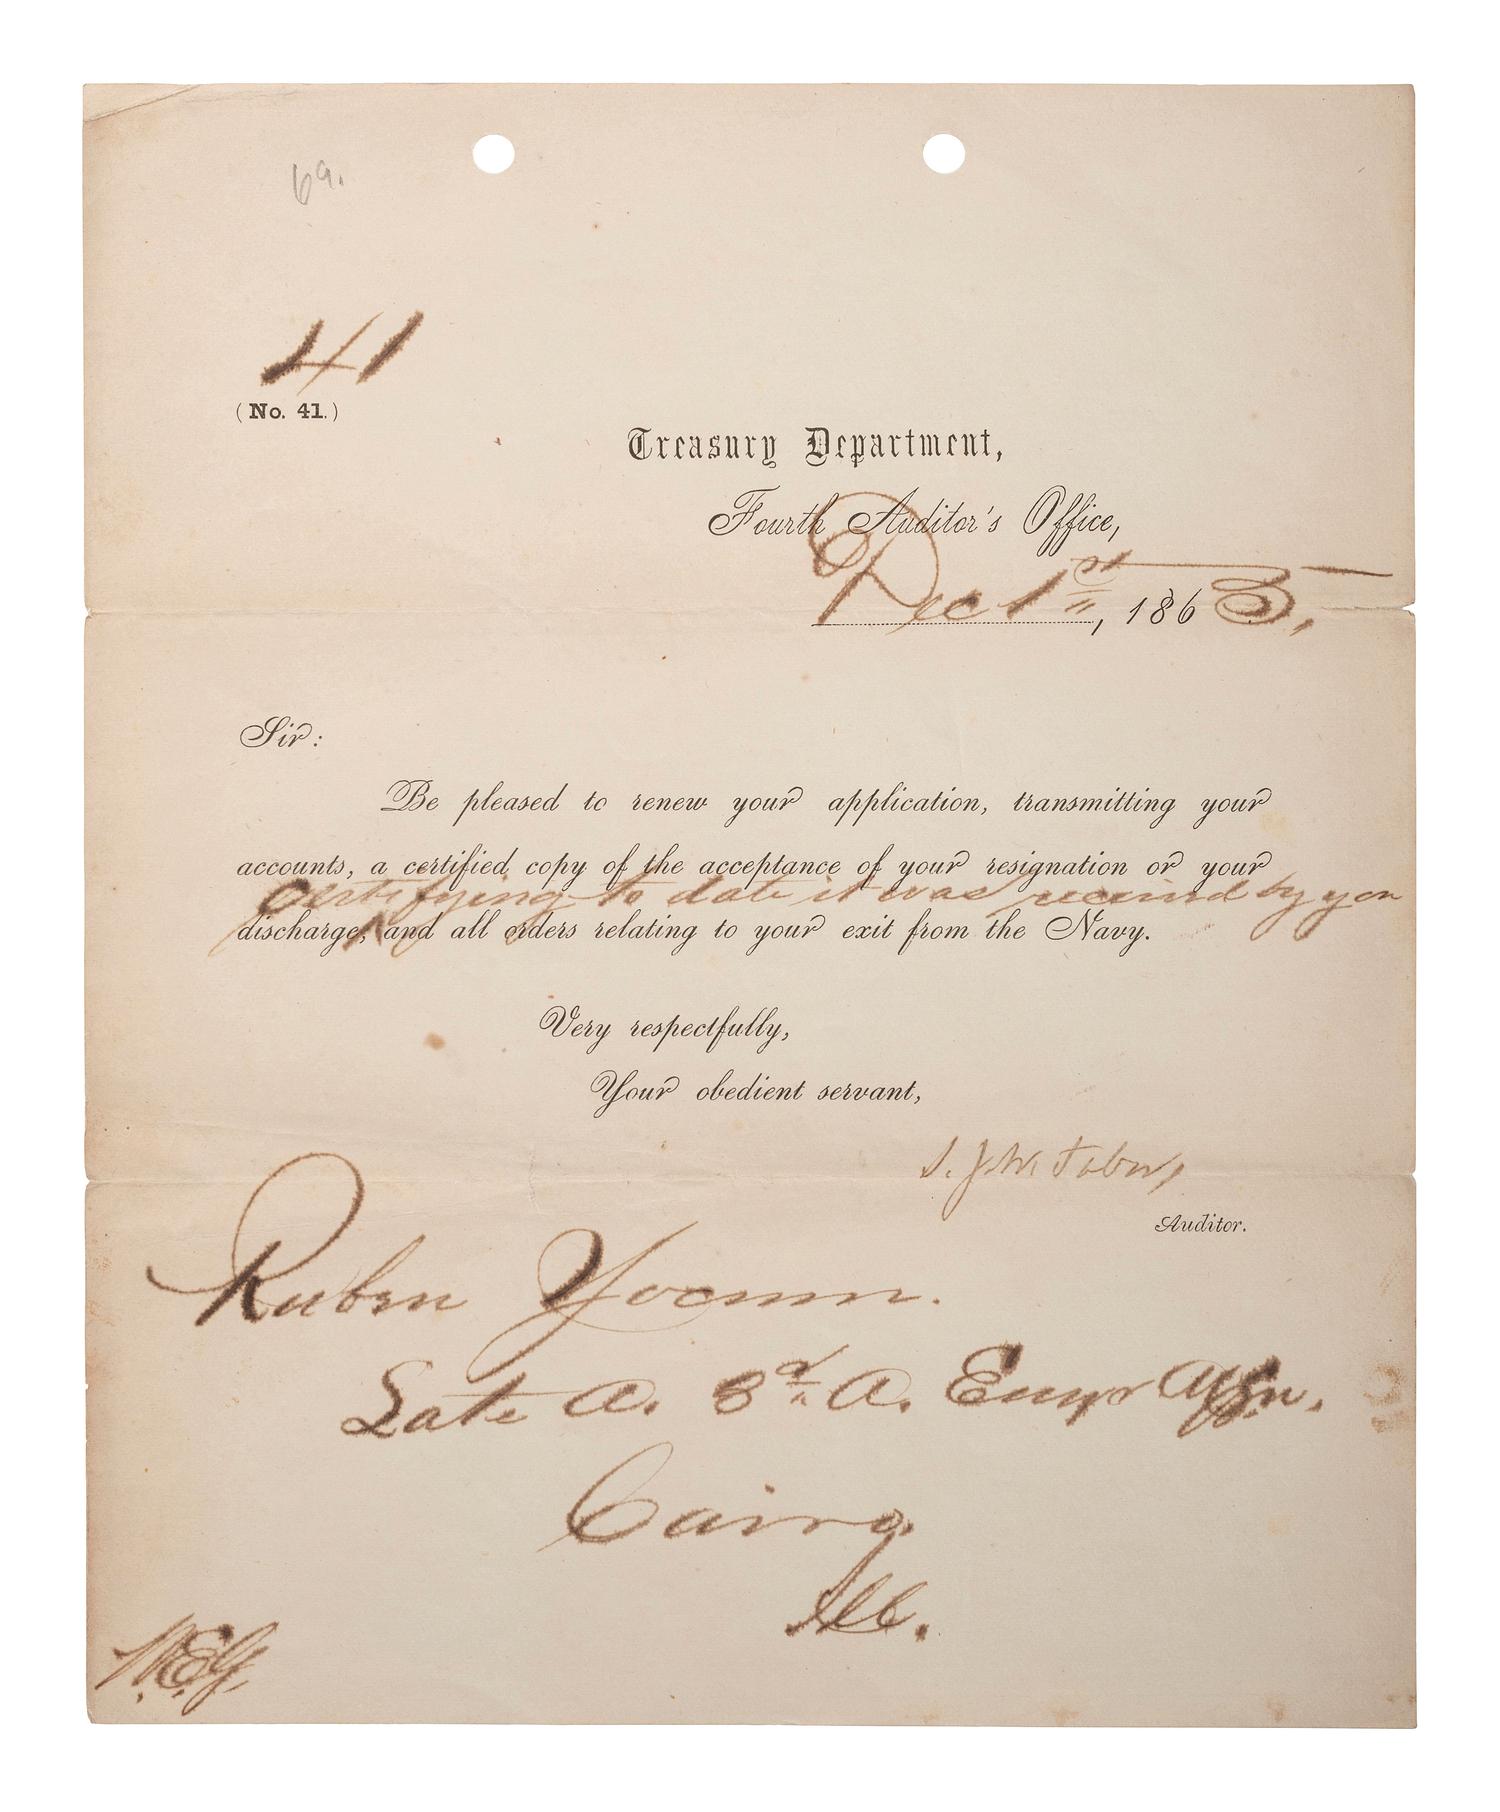 69.
41
(No. 41.)
Treasury Department,
Fourth Auditor's Office,
Dec 1st, 1865,
Sir:
Be pleased to renew your application, transmitting your
accounts, a certified copy of the acceptance of your resignation or your
Certifying to date it was received by you
discharge, and all orders relating to your exit from the Navy.
Very respectfully,
Your obedient servant,
S. J. W. Tabor,
Auditor.
Ruben Yocum.
Late A. 3d A. Engr
Cairo.
Ill.